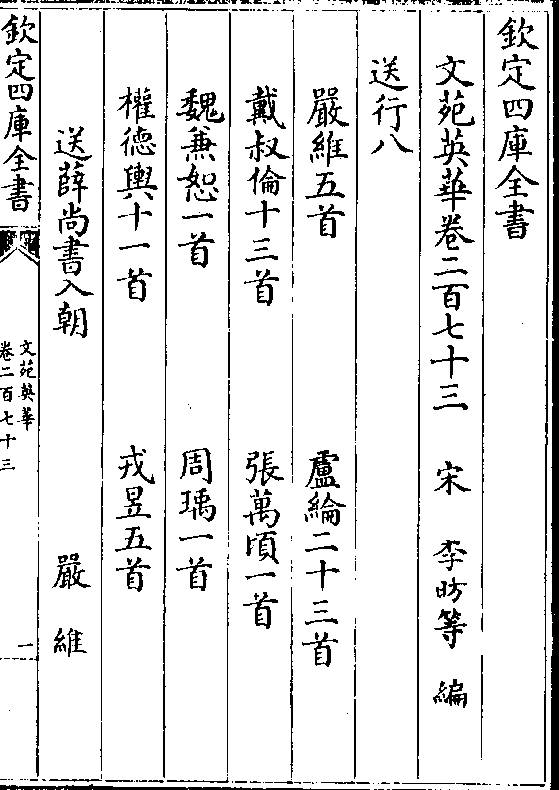 欽定四庫全書
文苑英華卷二百七十三 宋 李昉等 編
送行八
嚴維五首 盧綸二十三首
戴叔倫十三首 張萬頃一首
魏兼恕一首 周瑀一首
權德輿十一首 戎昱五首
送薛尚書入朝 嚴維
欽定四庫全書
文苑英華
卷二百七十三
一